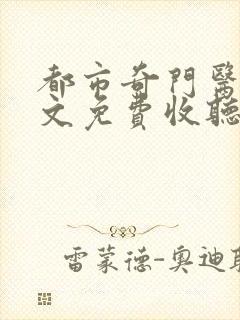 都市奇門醫
文免費收聽
雷蒙德-奧迪耶